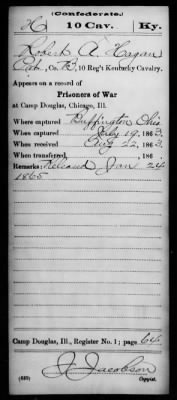 (Confederate.)
H 10 Cav. Ky.
Robert A. Hagan
Co. , 10 Reg't Kentucky Cavalry.
Appears on a record of
Prisoners of War
at Camp Douglas, Chicago, Ill.
Where captured Buffington Ohio
When captured July 19, 1863.
When received Aug 22, 1863.
When transferred, , 186 .
Remarks: Released Jan 24
1865
Camp Douglas, Ill., Register No. 1; page 64
J. Jacobson
Copyist.